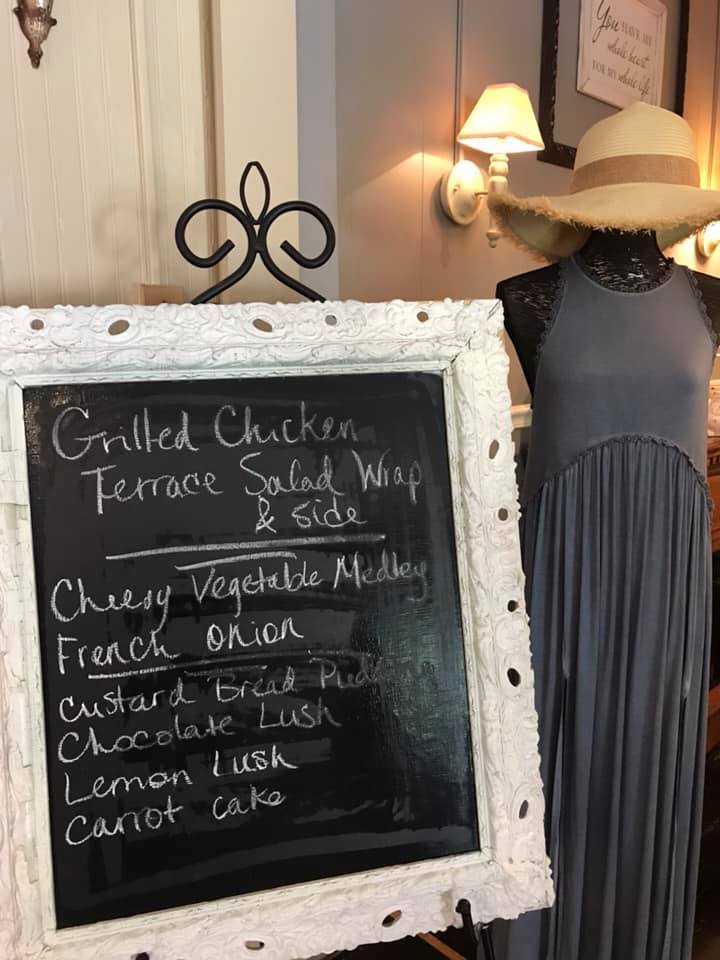 You HAVE MY
whole heart
FOR MY whole life
Grilled Chicken
Terrace Salad Wrap
& side
Cheesy Vegetable Medley
French onion
Custard Bread
Chocolate Lush
Lemon Lush
Carrot cake